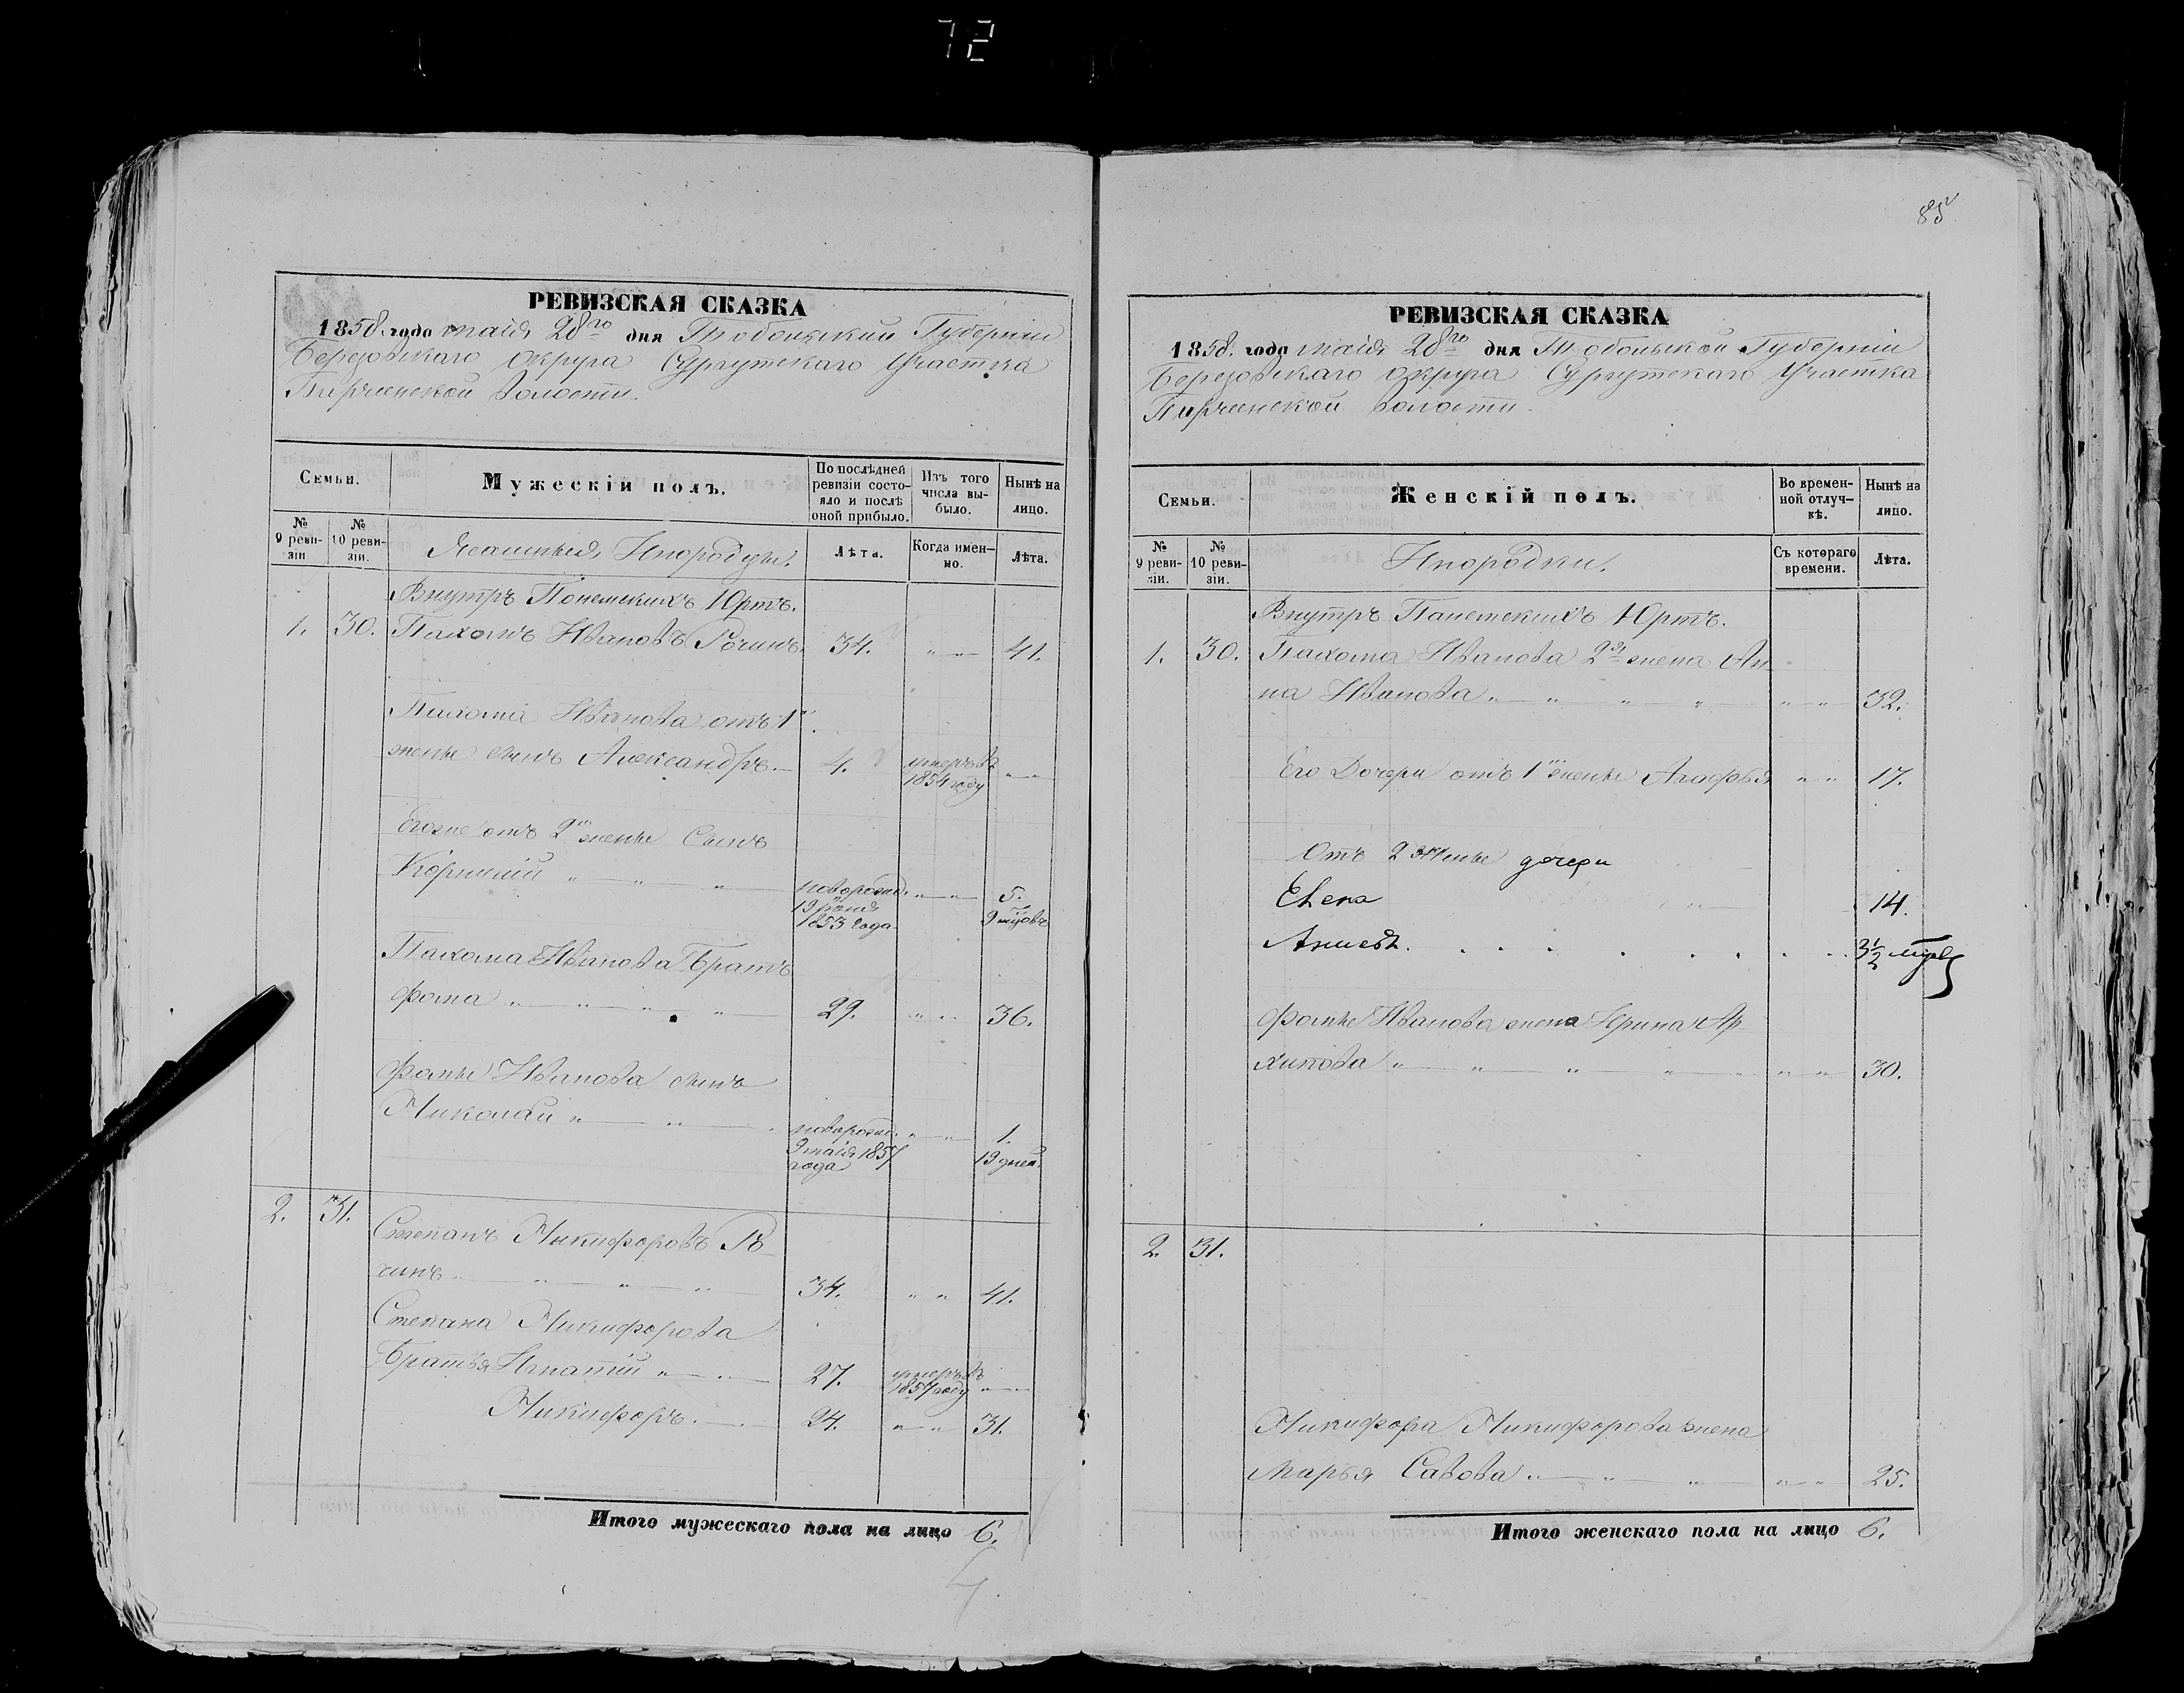 72
85
РЕВИЗСКАЯ СКАЗКА
1858. года маія 28го дня Тобольской Губерніи
Березовскаго округа Сургутскаго Участка
волости.
Семьи.
Мужескій полъ.
По послѣдней ревизіи состояло и послѣ оной прибыло.
Изъ того числа выбыло.
Нынѣ на лицо.
№ 9 ревизіи
№ 10 ревизіи.
Ясашныя Инородцы.
Лѣта.
Когда именно.
Лѣта.
Внутрь Юртъ.
1. 30. Пахомъ Ивановъ 34. „ „ 41.
Пахома Иванова отъ 1й
жены сынъ Александръ 4. умеръ въ 1854 году „ „
Егоже отъ 2й жены Сынъ
Корнилий „ „ „ новорожд. 19 1853 года „ „ 5. 9 мцовъ
Пахома Иванова Братъ
Фома „ „ „ „ 29. „ „ 36.
Фомы Иванова сынъ
Николай „ „ новорожд. 9 маія 1857 года „ „ 1. 19 дней.
2. 31. Степанъ Никифоровъ
чинъ „ „ „ „ 34. „ „ 41.
Степана Никифорова
Братья Игнатій „ „ 27. умеръ въ 1857 году „ „
Никифоръ 24. „ „ 31.
Итого мужескаго пола на лицо 6.
РЕВИЗСКАЯ СКАЗКА
1858. года маія 28го дня Тобольской Губерніи
Березовскаго округа Сургутскаго Участка
волости.
Семьи.
Женскій полъ.
Во временной отлучкѣ.
Нынѣ на лицо.
№ 9 ревизіи.
№ 10 ревизіи.
Инородки.
Съ котораго времени.
Лѣта.
Внутрь Юртъ.
1. 30. Пахома Иванова 2я жена Ан
на Иванова „ „ „ „ „ „ 32.
Его Дочери отъ 1й жены Агафья „ „ 17.
Отъ 2 жены дочери
Елена 14.
3 1/2
Фомы Иванова жена Ирина Ар
хипова „ „ „ „ „ „ 30.
2. 31.
Никифора Никифорова жена
Марья Савова „ „ „ „ „ 25.
Итого женскаго пола на лицо 6.